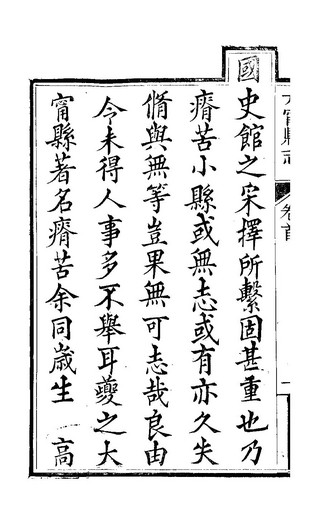 國
史館之宋擇所繫固甚重也乃
瘠苦小縣或無志或有亦久失
脩與無等豈果無可志哉良由
今未得人事多不舉耳夔之大
甯縣著名瘠苦余同歲生　高
大甯縣志
卷首
一